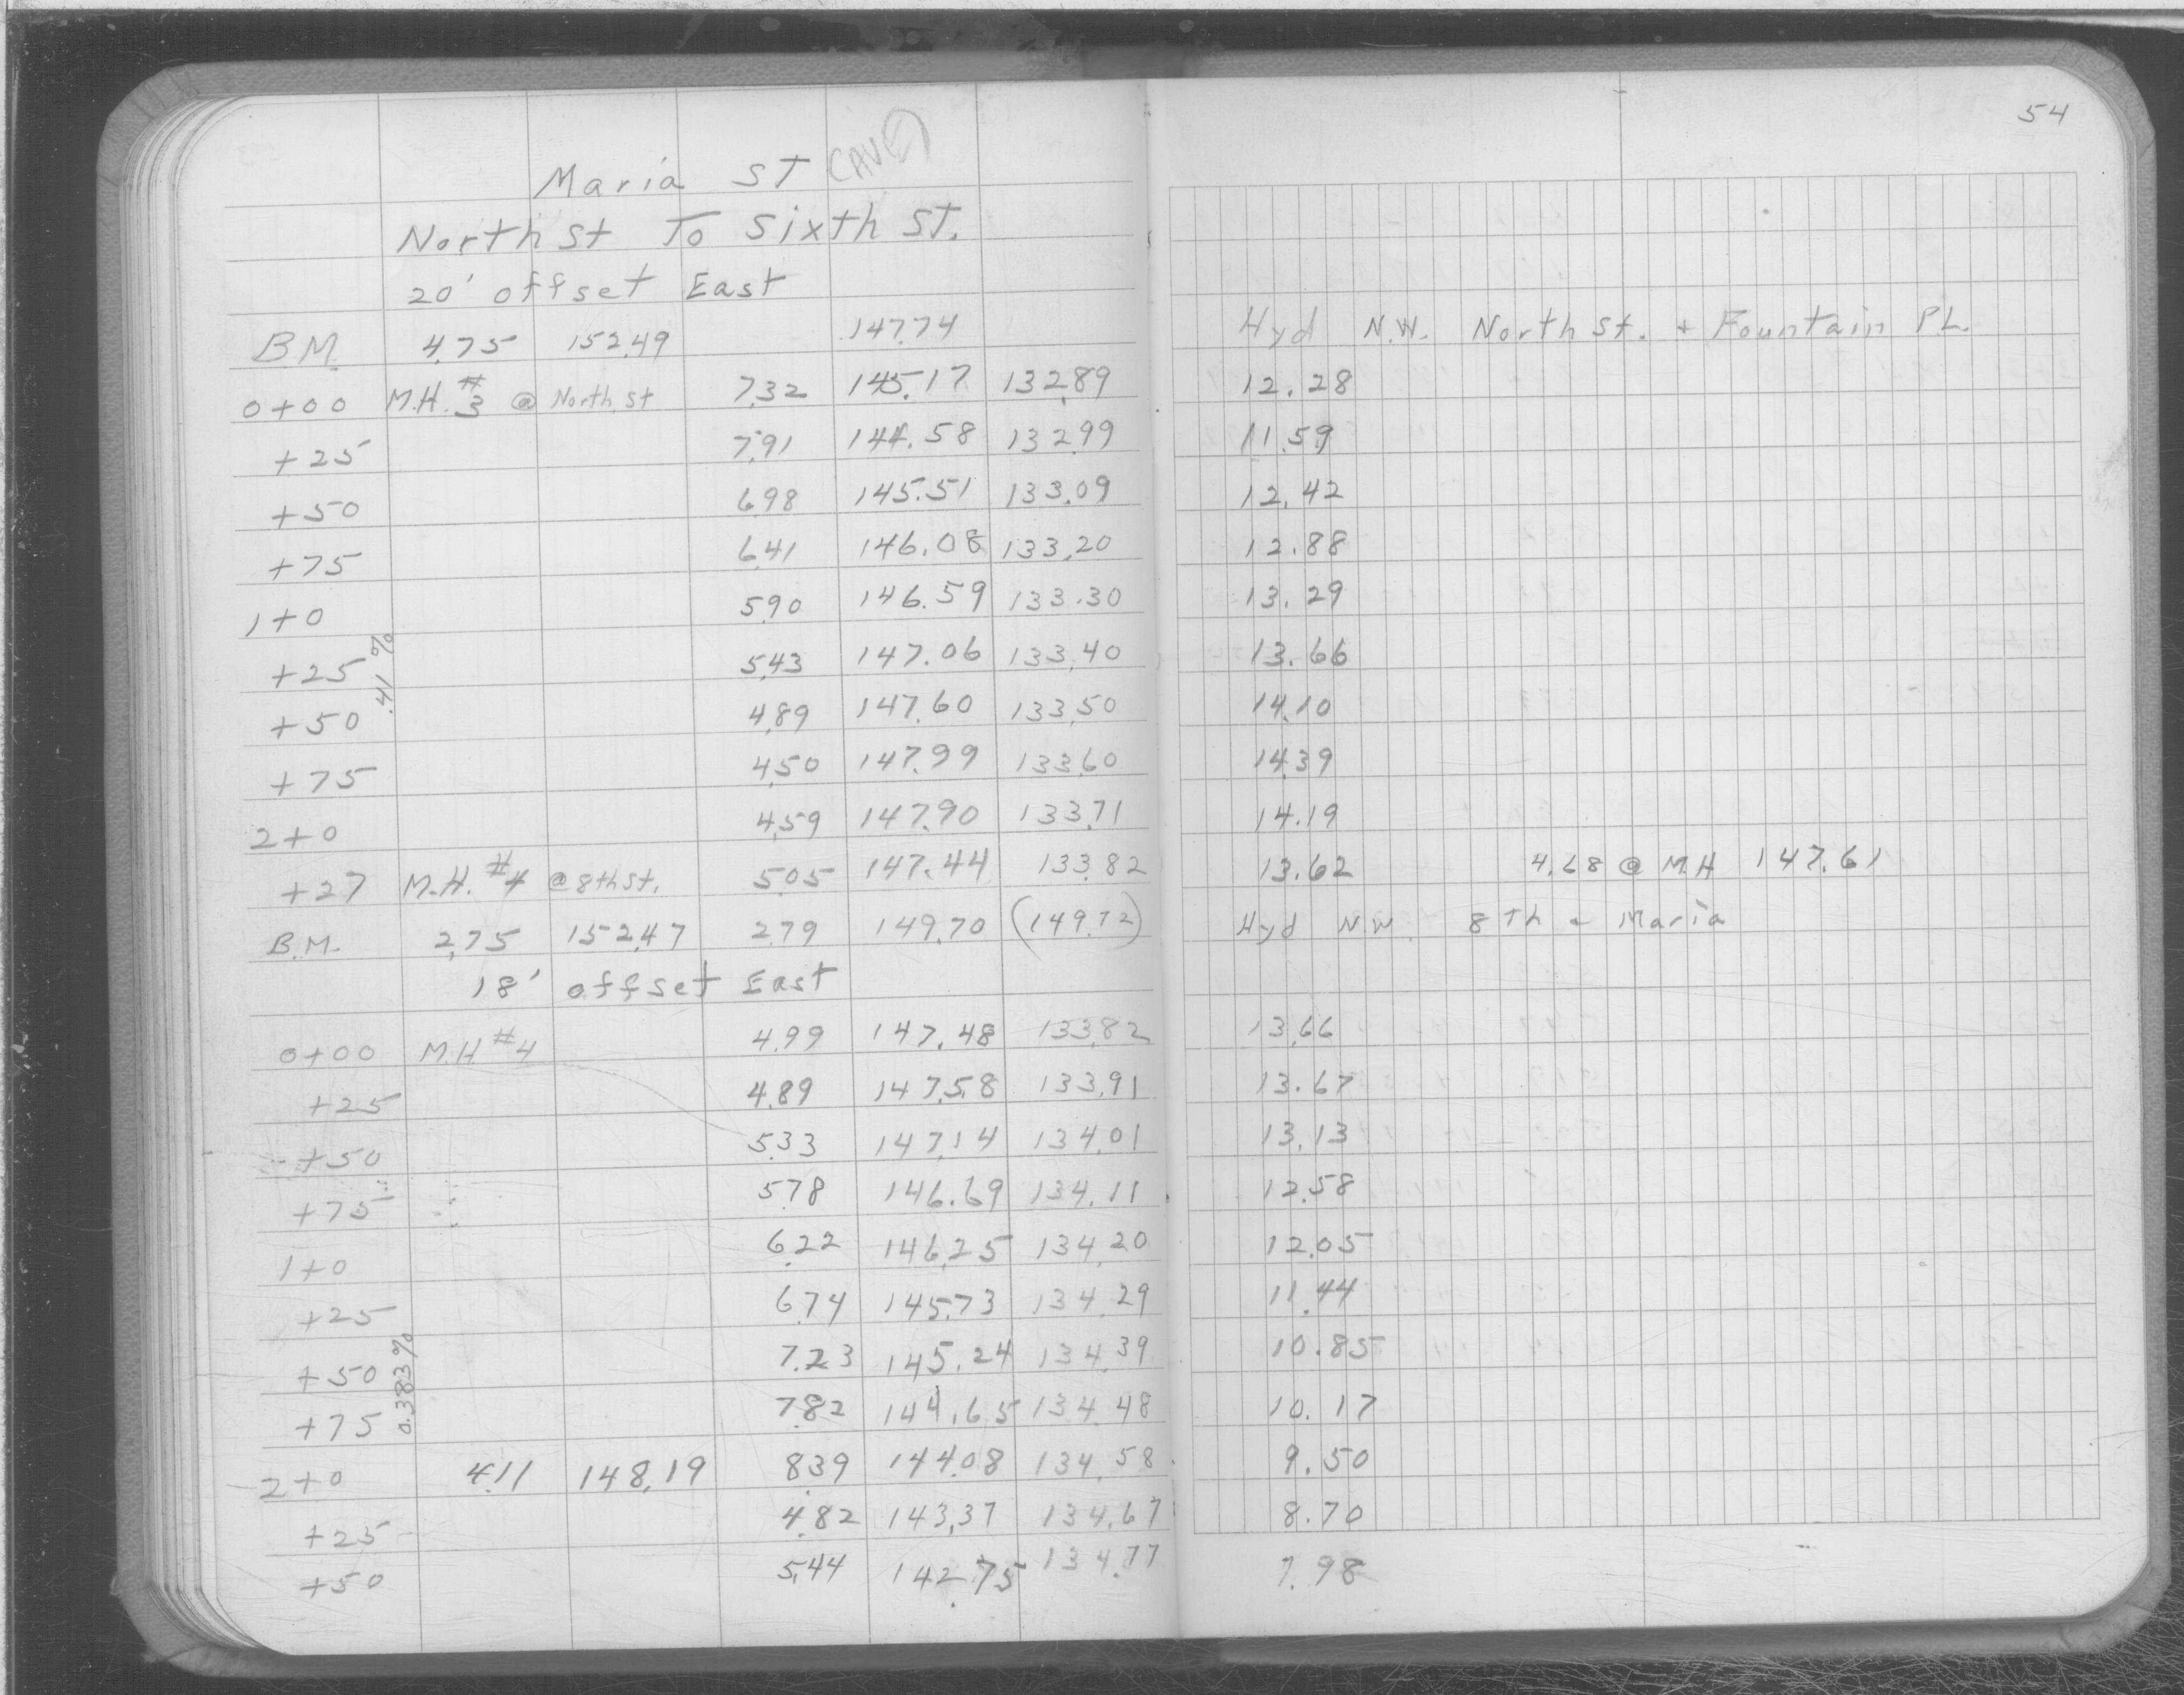 54
Maria ST
North st To Sixth ST.
20' offset East
B.M. 4.75 152.49 147.74 Hyd N.W. North St. + Fountain PL.
0+00 M.H. #3 @ North St 7.32 145.17 132.89 12.28
+25 7.91 144.58 132.99 11.59
+50 6.98 145.51 133.09 12.42
+75 6.41 146.08 133.20 12.88
1+0 5.90 146.59 133.30 13.29
+25 5.43 147.06 133.40 13.66
.41 %
+50 4.89 147.60 133.50 14.10
+75 4.50 147.99 133.60 14.39
2+0 4.59 147.90 133.71 14.19
+27 M.H. #4 @ 8th St. 5.05 147.44 133.82 13.62 4.68 @ M.H 147.61
B.M. 2.75 152.47 2.79 149.70 (149.72) Hyd N.W. 8th - Maria
18' offset East
0+00 M.H #4 4.99 147.48 133.82 13.66
+25 4.89 147.58 133.91 13.67
+50 5.33 147.14 134.01 13.13
+75 5.78 146.69 134.11 12.58
1+0 6.22 146.25 134.20 12.05
+25 6.74 145.73 134.29 11.44
+50 7.23 145.24 134.39 10.85
0.383%
+75 7.82 144.65 134.48 10.17
2+0 4.11 148.19 8.39 144.08 134.58 9.50
+25 4.82 143.37 134.67 8.70
+50 5.44 142.75 134.77 7.98